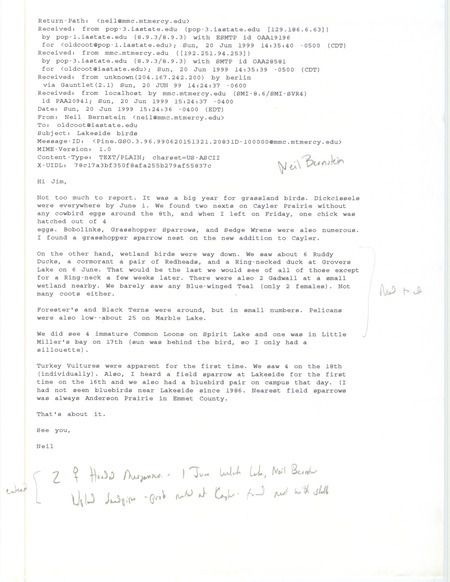 Return-Path: <neil@mmc.mtmercy.edu>
Received: from pop-3.iastate.edu (pop-3.iastate.edu [129.186.6.63])
by pop-1.iastate.edu (8.9.3/8.9.3) with ESMTP id OAA19196
for <oldcoot@pop-1.iastate.edu>; Sun, 20 Jun 1999 14:35:40 -0500 (CDT)
Received: from mmc.mtmercy.edu ([192.251.94.253])
by pop-3.iastate.edu (8.9.3/8.9.3) with SMTP id OAA28581
for <oldcoot@iastate.edu>; Sun, 20 Jun 1999 14:35:39 -0500 (CDT)
Received: from unknown(204.167.242.200) by berlin
via Gauntlet(2.1) Sun, 20 JUN 99 14:24:37 -0600
Received: from localhost by mmc.mtmercy.edu (SMI-8.6/SMI-SVR4)
id PAA20941; Sun, 20 Jun 1999 15:24:37 -0400
Date: Sun, 20 Jun 1999 15:24:36 -0400 (EDT)
From: Neil Bernstein <neil@mmc.mtmercy.edu>
To: oldcoot@iastate.edu
Subject: Lakeside birds
Message-ID: <Pine.GSO.3.96.990620151321.20831D-100000@mmc.mtmercy.edu>
MIME-Version: 1.0
Content-Type: TEXT/PLAIN; charset=US-ASCII
X-UIDL: 78c17a3bf350f8afa255b279af55837c
Neil Bernstein
Hi Jim,
Not too much to report. It was a big year for grassland birds. Dickcissels
were everywhere by June 1. We found two nests on Cayler Prairie without
any cowbird eggs around the 8th, and when I left on Friday, one chick was
hatched out of 4
eggs. Bobolinks, Grasshopper Sparrows, and Sedge Wrens were also numerous.
I found a grasshopper sparrow nest on the new addition to Cayler.
On the other hand, wetland birds were way down. We saw about 6 Ruddy
Ducks, a cormorant a pair of Redheads, and a Ring-necked duck at Grovers
Lake on 6 June. That would be the last we would see of all of those except
for a Ring-neck a few weeks later. There were also 2 Gadwall at a small
wetland nearby. We barely saw any Blue-winged Teal (only 2 females). Not
many coots either.
Forester's and Black Terns were around, but in small numbers. Pelicans
were also low--about 25 on Marble Lake.
We did see 4 immature Common Loons on Spirit Lake and one was in Little
Miller's bay on 17th (sun was behind the bird, so I only had a
sillouette).
Turkey Vultures were apparent for the first time. We saw 4 on the 18th
(individually). Also, I heard a field sparrow at Lakeside for the first
time on the 16th and we also had a bluebird pair on campus that day. (I
had not seen bluebirds near Lakeside since 1986. Nearest field sparrows
was always Anderson Prairie in Emmet County.
That's about it.
See you,
Neil
2 ♀ Hooded Merganser - 1 June Welch Lake, Neil Bernstein
Upland Sandpiper - nest at Cayler - found nest with shells